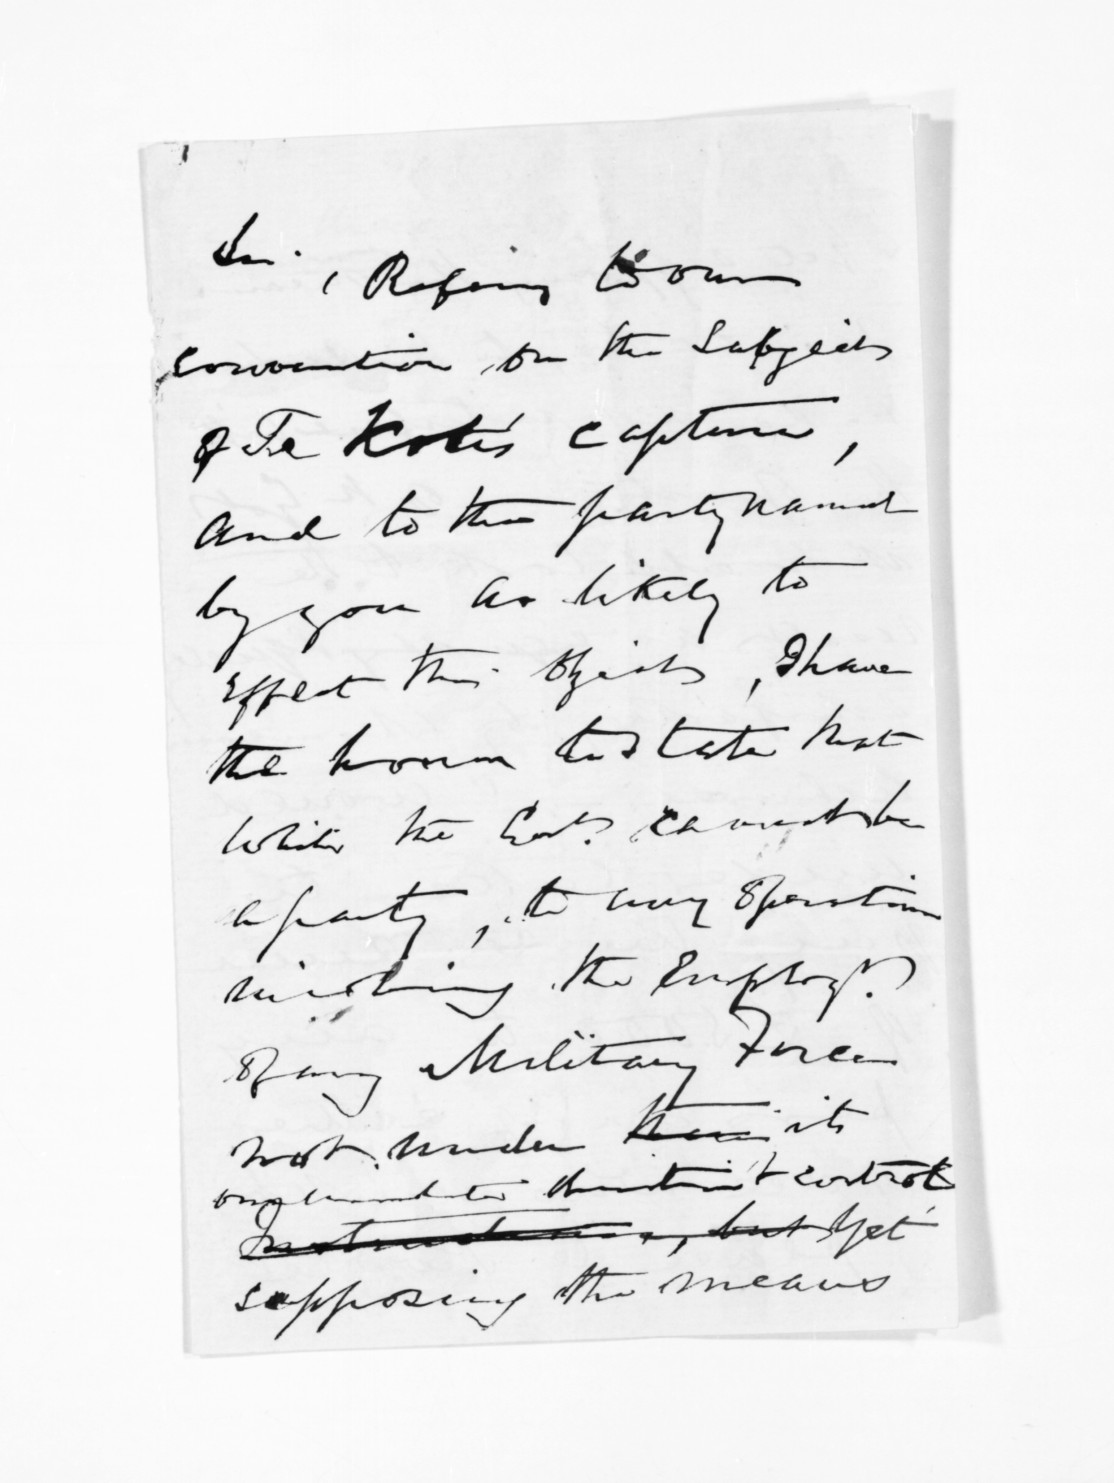 Sir,
Refering to our
convention on the Subjects
of Te Koti's capture,
and to the party named
by you as likely to
effect this object, I have
the honor to state that
while the Govt. cannot be
a party, to any operation
involving the Employt.
of any Military Force
not under their its
direction & control
Instructions, but yet
supposing the means